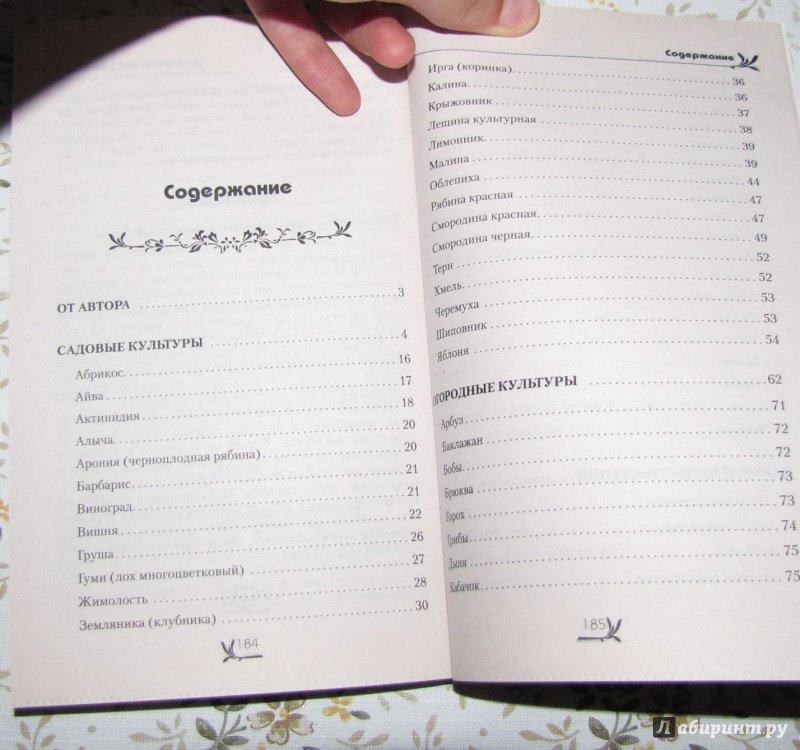 Содержание
ОТ АВТОРА ........ 3
САДОВЫЕ КУЛЬТУРЫ ........ 4
Абрикос ........ 16
Айва ........ 17
Актинидия ........ 18
Алыча ........ 20
Арония (черноплодная рябина) ........ 20
Барбарис ........ 21
Виноград ........ 21
Вишня ........ 22
Груша ........ 26
Гуми (лох многоцветковый) ........ 27
Жимолость ........ 28
Земляника (клубника) ........ 30
184
Содержание
Ирга (коринка) ........ 36
Калина ........ 36
Крыжовник ........ 37
Лещина культурная ........ 38
Лимонник ........ 39
Малина ........ 39
Облепиха ........ 44
Рябина красная ........ 47
Смородина красная ........ 47
Смородина черная ........ 49
Терн ........ 52
Хмель ........ 52
Черемуха ........ 53
Шиповник ........ 53
Яблоня ........ 54
ОГОРОДНЫЕ КУЛЬТУРЫ ........ 62
Арбуз ........ 71
Баклажан ........ 72
Бобы ........ 72
Брюква ........ 73
Горох ........ 73
Грибы ........ 74
Дыня ........ 75
Кабачок ........ 75
185
Лабиринт.ру